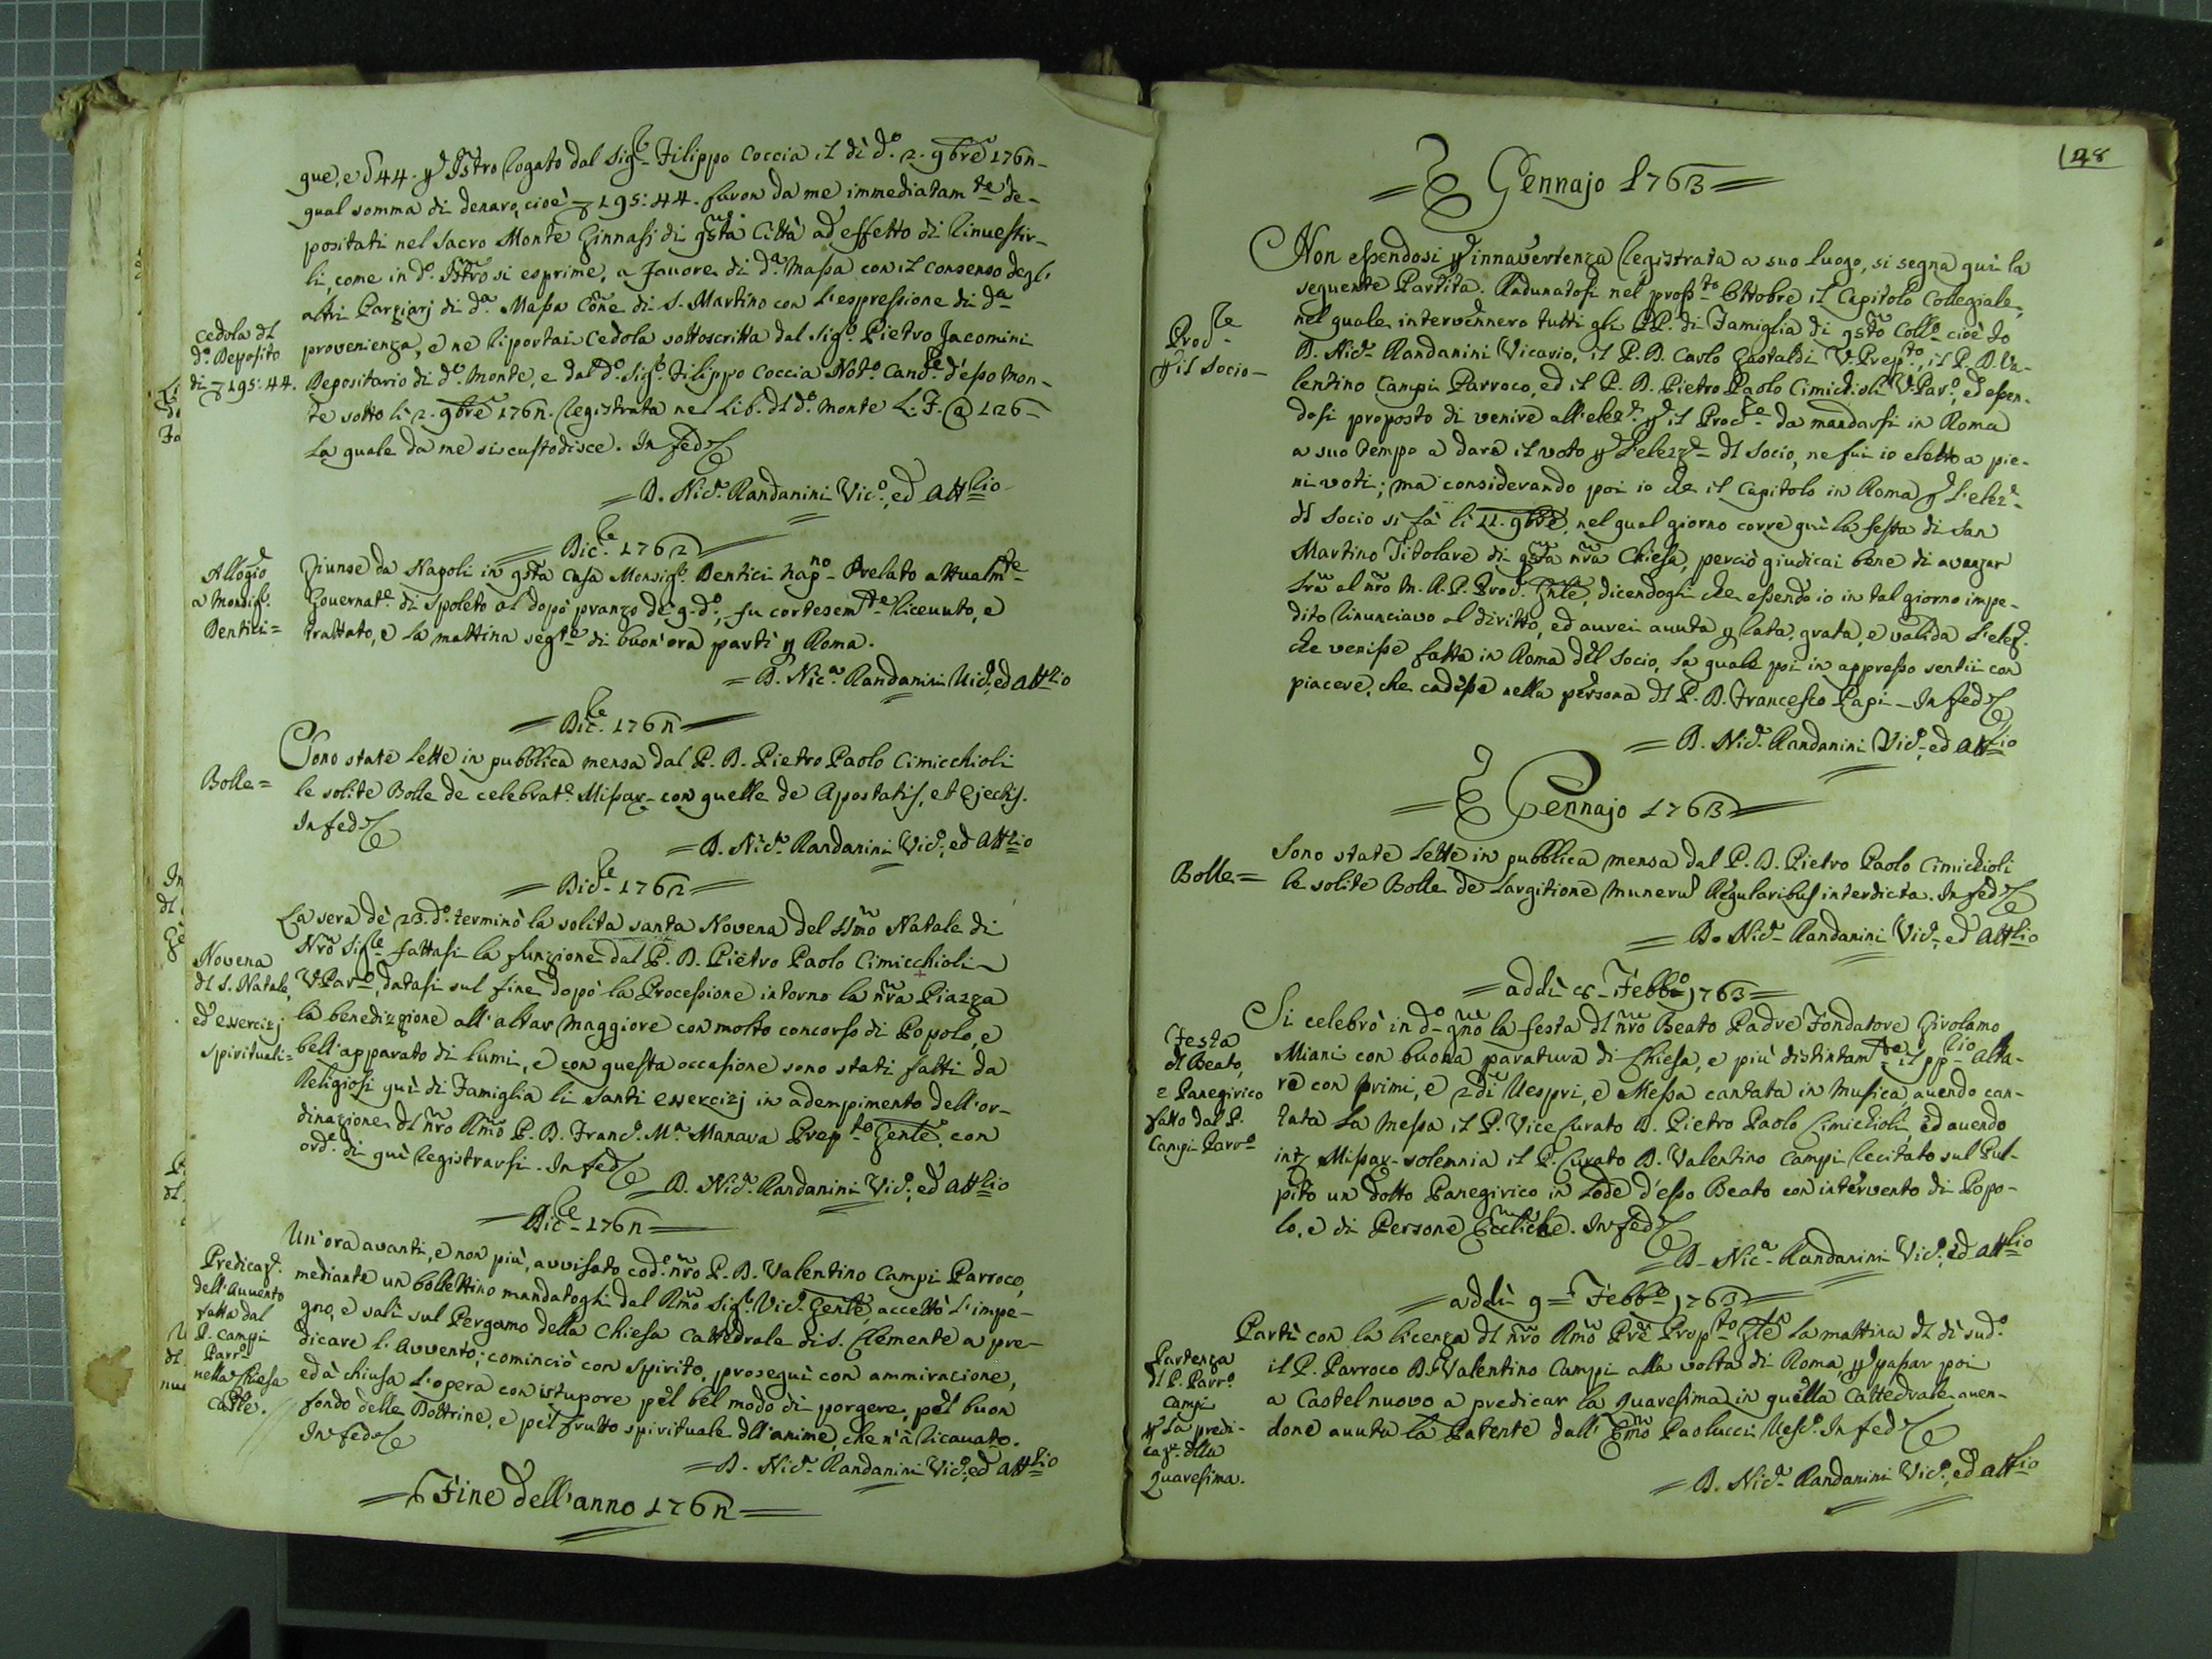 gue, e δ 44. p Istro Rogato dal Sig.r Filippo Coccia il dì d.o 2. 9bre 1762
qual somma di denaro, cioè 195:44. furon da me immediatam.te de-
positati nel Sacro Monte Ginnasi di qsta Città ad effetto di rinvestir-
li, come in d.o Istro si esprime, a favore di d.a Massa con il consenso degl'
altri Parziarj di d.a Massa Cõne di S. Martino con l'espressione di d.a
provenienza, e ne riportai Cedola sottoscritta dal Sig.r Pietro Jacomini
Depositario di d.o Monte, e dal d.o Sig.r Filippo Coccia Not.o Canc.re d'esso Mon-
te sotto li 2. 9bre 1762. registrata nel Lib. dl d.o Monte L. F. @ 126
la quale da me si custodisce. In fede
Cedola dl
d.o Deposito
di 195:44.
= D. Nic.a Randanini Vic.o, ed Att.rio
= Dic.re 1762 =
Allogio
a Monsig.r
Dentici =
Giunse da Napoli in qsta Casa Monsig.r Dentici Nap.no Prelato attualm.te
Governat.e di Spoleto al dopo pranzo de' 9. d.o, fu cortesem.te ricevuto, e
trattato, e la mattina seg.te di buon'ora partì p Roma.
= D. Nic.a Randanini Vic.o, ed Att.rio
= Dic.re 1762 =
Bolle =
Sono state lette in pubblica mensa dal P. D. Pietro Paolo Cimicchioli
le solite Bolle de celebrat.e Missar. con quelle de Apostatis, et Ejectis.
In fede
= D. Nic.a Randanini Vic.o, ed Att.rio
= Dic.re 1762 =
La sera de' 23. d.o terminò la solita santa Novena del SSmo Natale di
Nrõ Sig.re fattasi la funzione dal P. D. Pietro Paolo Cimicchioli
V.Par.o, datasi sul fine dopo la Processione intorno la nrã Piazza
la benedizzione all'altar Maggiore con molto concorso di Popolo, e
bell'apparato di lumi, e con questa occasione sono stati fatti da
Religiosi qui di Famiglia li santi esercizj in adempimento dell'or-
dinazione dl nrõ Rmõ P. D. Franc.o M.a Manara Prep.to Gentẽ, con
ord.e di qui registrarsi. In fede
Novena
dl S. Natale,
ed esercizj
spirituali =
D. Nic.a Randanini Vic.o, ed Att.rio
= Dic.re 1762 =
Un'ora avanti, e non più, avvisato cod.o nrõ P. D. Valentino Campi Parroco,
mediante un bollettino mandatogli dal Rmõ Sig.r Vic.o Gentẽ, accettò l'impe-
gno, e salì sul Pergamo della Chiesa Cattedrale di S. Clemente a pre-
dicare l'Avvento; cominciò con spirito, proseguì con ammirazione,
ed à chiusa l'opera con istupore pel bel modo di porgere, pel buon
fondo delle Dottrine, e pel frutto spirituale dll'anime, che n'à ricavato.
In fede
Predicaz.e
dell'Avvento
fatta dal
P. Campi
Parr.o
nella Chiesa
Catt.le.
= D. Nic.a Randanini Vic.o, ed Att.rio
= Fine dell'anno 1762 =
128
= Gennajo 1763 =
Non essendosi p innavertenza registrata a suo luogo, si segna qui la
seguente Partita. Radunatosi nel pross.to Ottobre il Capitolo Collegiale,
nel quale intervennero tutti gli PP. di Famiglia di qsto Coll.o cioè Io
D. Nic.a Randanini Vicario, il P. D. Carlo Gastaldi V.Prep.to, il P. D. Va-
lentino Campi Parroco, ed il P. D. Pietro Paolo Cimichioli V.Par.o, ed essen-
dosi proposto di venire all'elez.e p il Proc.re da mandarsi in Roma
a suo tempo a dare il voto p l'elezz.e dl Socio, ne fui io eletto a pie-
ni voti; ma considerando poi io che il Capitolo in Roma p l'elez.e
dl Socio si fà li 11. 9bre, nel qual giorno corre quì la festa di San
Martino Titolare di qsta nrã Chiesa, perciò giudicai bene di avanzar
Lrã al nrõ M. R. P. Proc. Gnlẽ, dicendogli che essendo io in tal giorno impe-
dito rinunciavo al diritto, ed avrei avuta p rata, grata, e valida l'elez.
che venisse fatta in Roma del Socio, la quale poi in appresso sentii con
piacere, che cadesse nella persona dl P. D. Francesco Papi - In fede
Proc.re
p il Socio
= D. Nic.a Randanini Vic.o, ed Att.rio
= Gennajo 1763 =
Bolle =
Sono state lette in pubblica mensa dal P. D. Pietro Paolo Cimichioli
le solite Bolle de largitione munerũ Regularibus interdicta. In fede
= D. Nic.a Randanini Vic.o, ed Att.rio
= addì 8 Febb.o 1763 =
Si celebrò in d.o gno la festa dl nrõ Beato Padre Fondatore Girolamo
Miani con buona paratura di Chiesa, e più distintam.te il pp.lio Alta-
re con primi, e 2di Vespri, e Messa cantata in Musica, avendo can-
tata la Messa il P. Vice Curato D. Pietro Paolo Cimichioli, ed avendo
int. Missar. solemnia il P. Curato D. Valentino Campi recitato sul Pul-
pito un dotto Panegirico in Lode d'esso Beato con intervento di Popo-
lo, e di Persone Eccliche. In fede
Festa
dl Beato,
e Panegirico
fatto dal P.
Campi Parr.o
= D. Nic.a Randanini Vic.o, ed Att.rio
= addì 9 = Febb.o 1763 =
Partì con la licenza dl nrõ Rmõ Prẽ Prep.to Gtẽ la mattina dl dì sud.o
il P. Parroco D. Valentino Campi alla volta di Roma, p passar poi
a Castelnuovo a predicar la Quaresima in quella Cattedrale, aven-
done avuta la Patente dall'Emõ Paolucci Vesc.o In fede
Partenza
dl P. Parr.o
Campi
p la predi-
caz.e dlla
Quaresima.
= D. Nic.a Randanini Vic.o, ed Att.rio